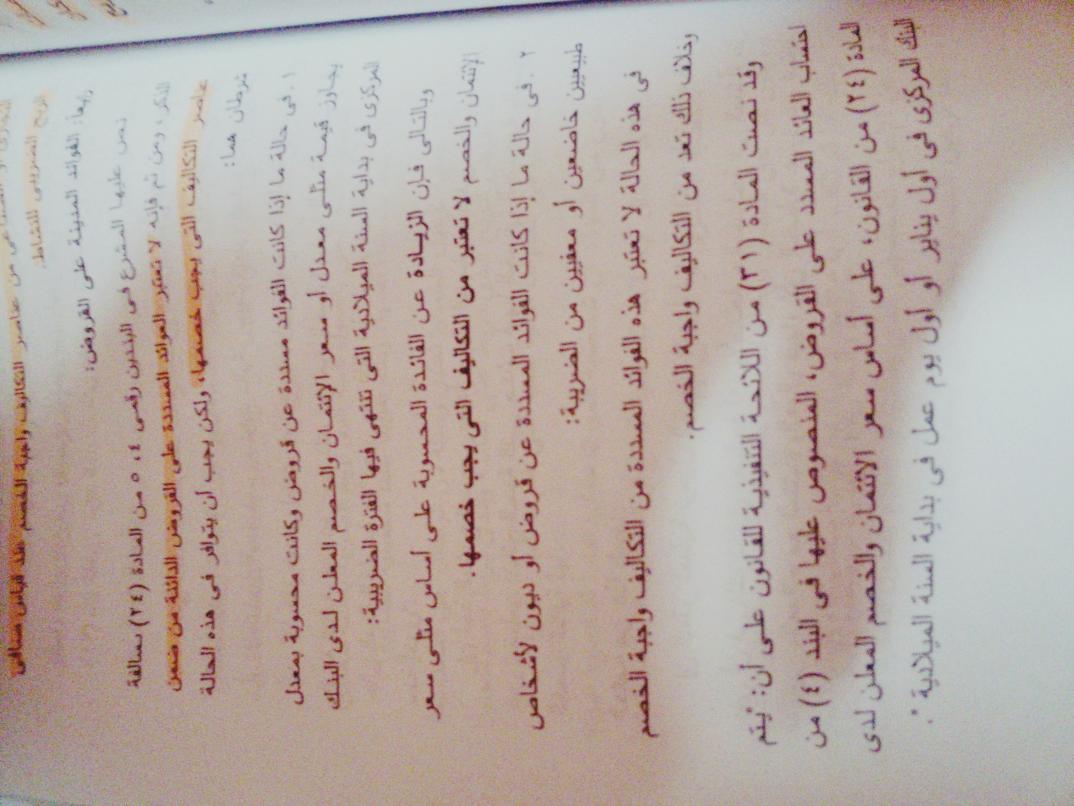 عناصر التكاليف واجبة الخصم عند قياس صافى
الربح الضريبى للنشاط.
رابعاً: الفوائد المدينة على القروض:
نص عليها المشرع فى البندين رقمى ٤، ٥ من المادة (٢٤) سالفة
الذكر، ومن ثم فإنه لا تعتبر الفوائد المسددة على القروض الدائنة من ضمن
عناصر التكاليف التى يجب خصمها، ولكن يجب أن يتوافر فى هذه الحالة
شرطان هما:
١. فى حالة ما إذا كانت الفوائد مسددة عن قروض وكانت محسوبة بمعدل
يجاوز قيمة مثلى معدل أو سعر الإئتمان والخصم المعلن لدى البنك
المركزى فى بداية السنة الميلادية التى تنتهى فيها الفترة الضريبية:
وبالتالى فإن الزيادة عن الفائدة المحسوبة على أساس مثلى سعر
الإئتمان والخصم لا تعتبر من التكاليف التى يجب خصمها.
٢. فى حالة ما إذا كانت الفوائد المسددة عن قروض أو ديون لأشخاص
طبيعيين خاضعين أو معفيين من الضريبة:
فى هذه الحالة لا تعتبر هذه الفوائد المسددة من التكاليف واجبة الخصم
وخلاف ذلك تعد من التكاليف واجبة الخصم.
وقد نصت المادة (٣١) من اللائحة التنفيذية للقانون على أن: "يتم
احتساب العائد المسدد على القروض، المنصوص عليها فى البند (٤) من
المادة (٢٤) من القانون، على أساس سعر الائتمان والخصم المعلن لدى
البنك المركزى فى أول يناير أو أول يوم عمل فى بداية السنة الميلادية".